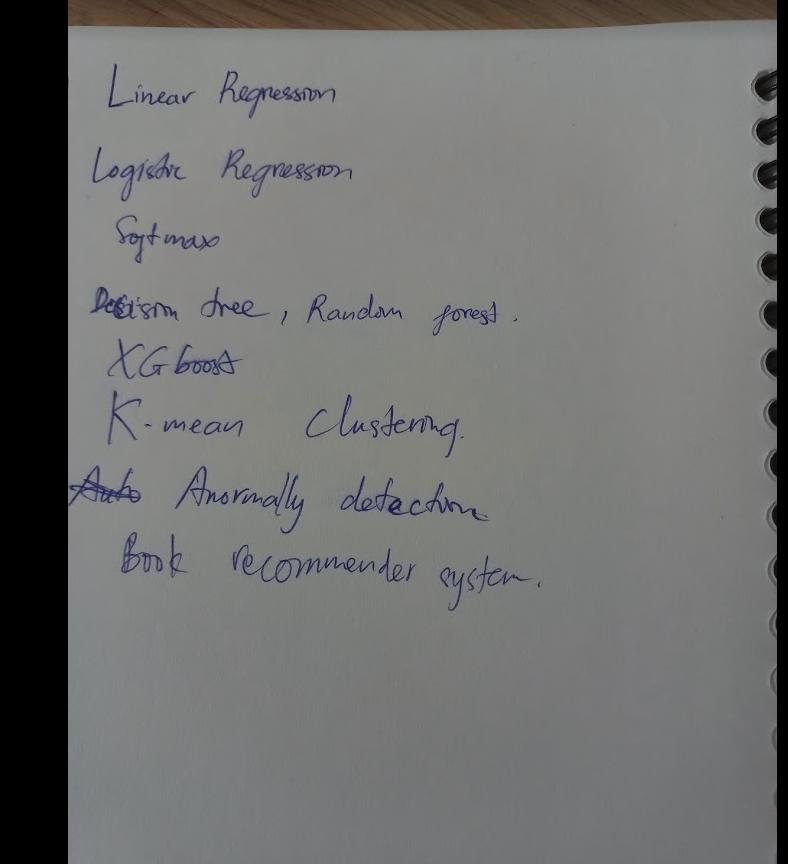 Linear Regression
Logistic Regression
Softmax
Decision tree, Random forest.
XG boost
K-mean Clustering.
Auto Anormally detection
Book recommender system.